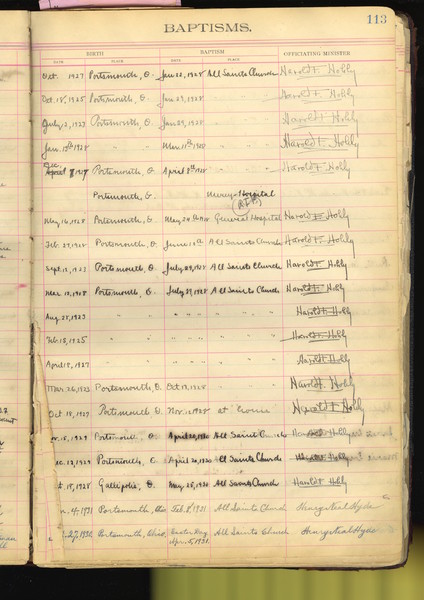 113
BAPTISMS.
BIRTH BAPTISM OFFICIATING MINISTER
DATE PLACE DATE PLACE
Oct. 1927 Portsmouth, O. Jan 22, 1928 All Saints Church Harold F. Hohly
Oct. 18, 1925 Portsmouth, O. Jan 29, 1928 " " " Harold F. Hohly
July 12, 1923 Portsmouth, O. Jan 29, 1928 " " " Harold F. Hohly
Jan. 1928 " " Mar. 11th 1928 " " " Harold F. Hohly
Dec. 8, 1927 Portsmouth, O. April 8th 1928 " " " Harold F. Hohly
Portsmouth, O. Mercy Hospital
May 16, 1928 Portsmouth, O. May 24th 1928 General Hospital Harold F. Hohly
Feb. 27, 1928 Portsmouth, O. June All Saints Church Harold F. Hohly
Sept. 12, 1923 Portsmouth, O. July 29, 1928 All Saints Church Harold F. Hohly
Mar. 18, 1928 Portsmouth, O. July 29, 1928 All Saints Church Harold F. Hohly
Aug. 25, 1923 " " " " " " " Harold F. Hohly
Feb. 13, 1925 " " " " " " " Harold F. Hohly
April 12, 1927 " " " " " " " Harold F. Hohly
Mar. 26, 1853 Portsmouth, O. Oct. 13, 1928 " " " Harold F. Hohly
Oct. 18, 1929 Portsmouth O. Nov. 1928 at home Harold F. Hohly
15, 1929 Portsmouth, O. April 20, 1930 All Saints Church Harold F. Hohly
13, 1929 Portsmouth, O. April 20, 1930 All Saints Church Harold F. Hohly
15, 1928 Gallipolis, O. May 25, 1930 All Saints Church Harold F. Hohly
4, 1931 Portsmouth, Ohio Feb. 8, 1931 All Saints Church Henry Neal Hyde
27, 1930 Portsmouth, Ohio Easter Day All Saints Church Henry Neal Hyde
Apr. 5, 1931